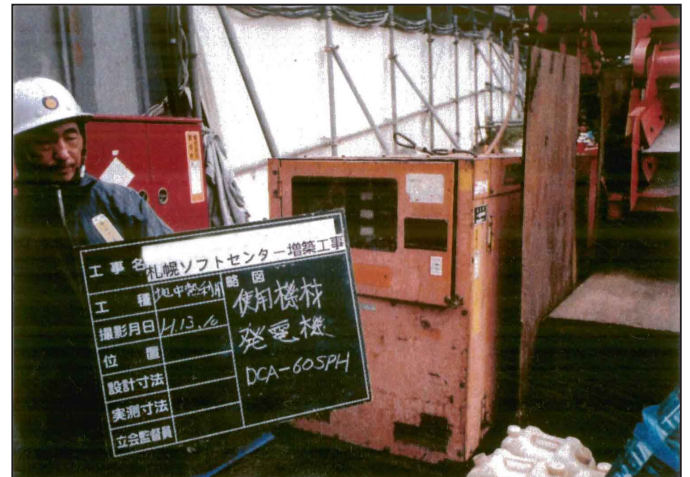 工事名 札幌ソフトセンター増築工事
工種 地中熱利用
撮影月日 H.13.10
位置
設計寸法
実測寸法
立会監督員
略図
使用機材
発電機
DCA-60SPH